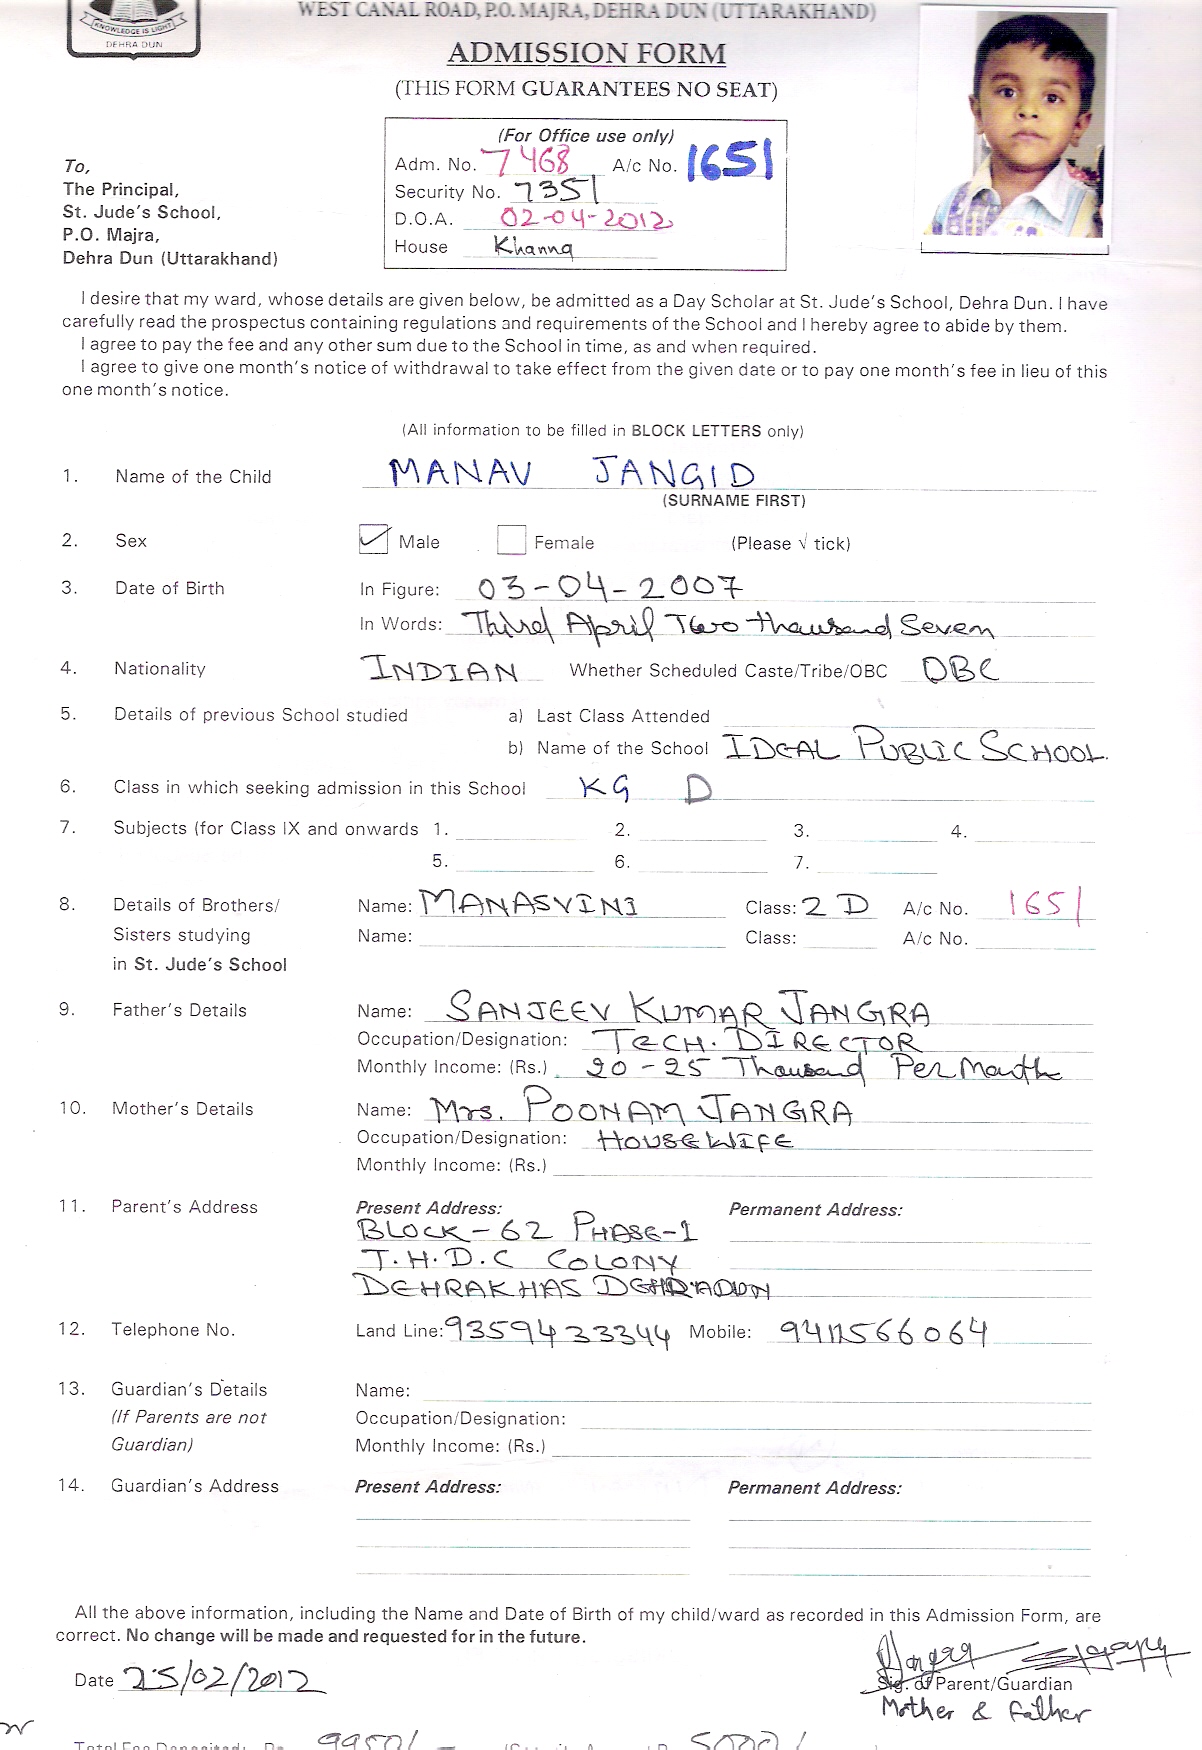 KNOWLEDGE IS LIGHT
DEHRA DUN
WEST CANAL ROAD, P.O. MAJRA, DEHRA DUN (UTTARAKHAND)
ADMISSION FORM
(THIS FORM GUARANTEES NO SEAT)
(For Office use only)
Adm. No. 7468 A/c No. 1651
Security No. 7351
D.O.A. 02-04-2012
House Khanna
To,
The Principal,
St. Jude's School,
P.O. Majra,
Dehra Dun (Uttarakhand)
I desire that my ward, whose details are given below, be admitted as a Day Scholar at St. Jude's School, Dehra Dun. I have
carefully read the prospectus containing regulations and requirements of the School and I hereby agree to abide by them.
I agree to pay the fee and any other sum due to the School in time, as and when required.
I agree to give one month's notice of withdrawal to take effect from the given date or to pay one month's fee in lieu of this
one month's notice.
(All information to be filled in BLOCK LETTERS only)
1. Name of the Child MANAV JANGID
(SURNAME FIRST)
2. Sex Male Female (Please √ tick)
3. Date of Birth In Figure: 03-04-2007
In Words: Third April Two thousand Seven
4. Nationality INDIAN Whether Scheduled Caste/Tribe/OBC OBC
5. Details of previous School studied a) Last Class Attended
b) Name of the School IDEAL PUBLIC SCHOOL.
6. Class in which seeking admission in this School KG D
7. Subjects (for Class IX and onwards 1. 2. 3. 4.
5. 6. 7.
8. Details of Brothers/ Name: MANASVINI Class: 2 D A/c No. 1651
Sisters studying Name: Class: A/c No.
in St. Jude's School
9. Father's Details Name: SANJEEV KUMAR JANGRA
Occupation/Designation: TECH. DIRECTOR
Monthly Income: (Rs.) 20-25 Thousand Per Month
10. Mother's Details Name: Mrs. POONAM JANGRA
Occupation/Designation: HOUSEWIFE
Monthly Income: (Rs.)
11. Parent's Address Present Address: Permanent Address:
BLOCK-62 PHASE-1
T.H.D.C COLONY
DEHRAKHAS DEHRADUN
12. Telephone No. Land Line: 9359433344 Mobile: 9411566064
13. Guardian's Details Name:
(If Parents are not Occupation/Designation:
Guardian) Monthly Income: (Rs.)
14. Guardian's Address Present Address: Permanent Address:
All the above information, including the Name and Date of Birth of my child/ward as recorded in this Admission Form, are
correct. No change will be made and requested for in the future.
Date 25/02/2012
Sig. of Parent/Guardian
Mother & Father
Total Fee Deposited: Rs